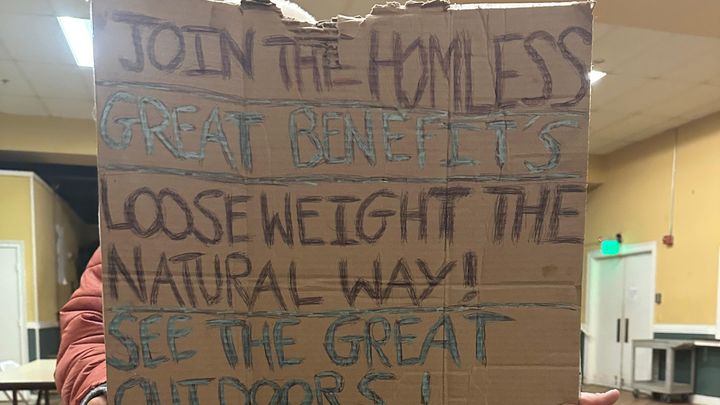 JOIN THE HOMLESS
GREAT BENEFIT'S
LOOSE WEIGHT THE
NATURAL WAY!
SEE THE GREAT
OUTDOORS!